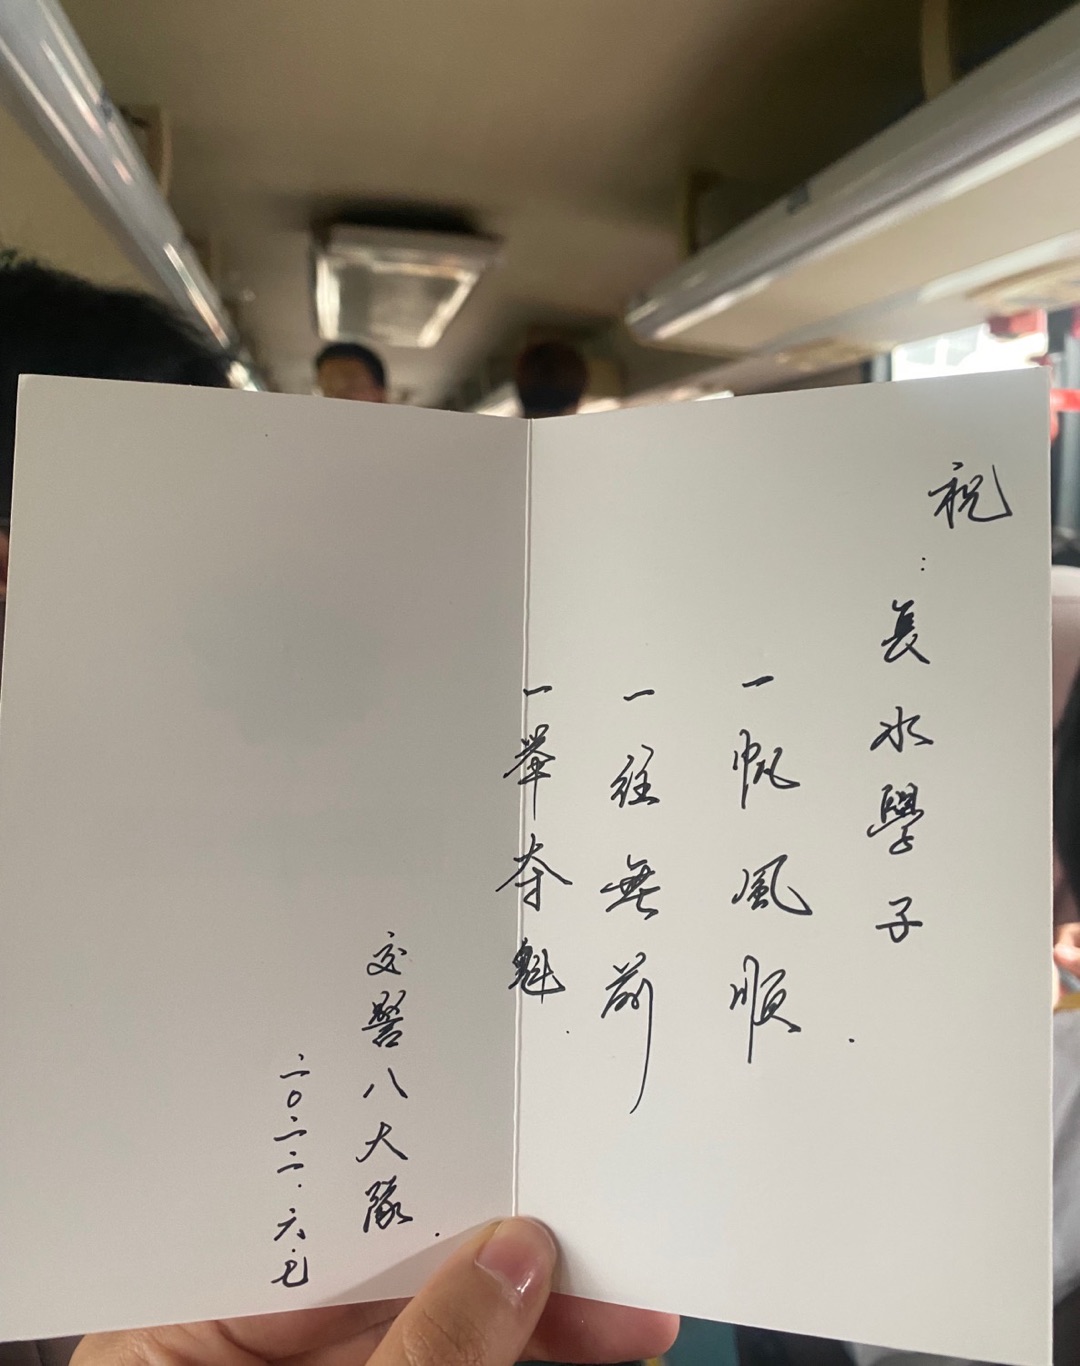 祝：
長水學子
一帆風順
一往無前
一舉夺魁.
交警八大隊
二〇二二.六.七